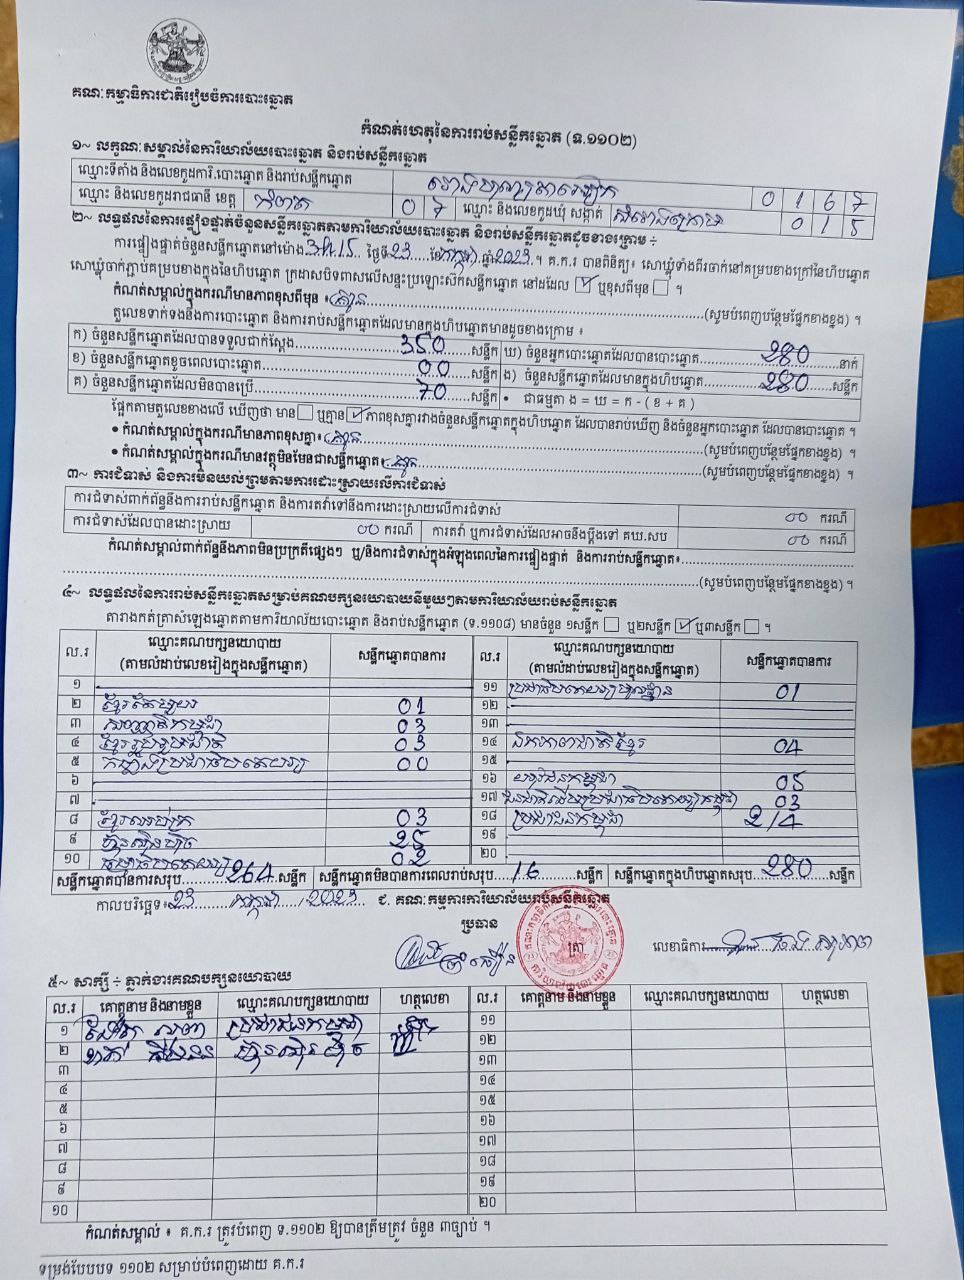 គណៈកម្មាធិការជាតិរៀបចំការបោះឆ្នោត
កំណត់ហេតុនៃការរាប់សន្លឹកឆ្នោត (ទ.១១០២)
១~ លក្ខណៈសម្គាល់នៃការិយាល័យបោះឆ្នោត និងរាប់សន្លឹកឆ្នោត
ឈ្មោះទីតាំង និងលេខកូដការិ.បោះឆ្នោត និងរាប់សន្លឹកឆ្នោត 0 1 6 7
ឈ្មោះ និងលេខកូដរាជធានី ខេត្ត កំពត 0 7 ឈ្មោះ និងលេខកូដឃុំ សង្កាត់ 0 1 5
២~ លទ្ធផលនៃការផ្ទៀងផ្ទាត់ចំនួនសន្លឹកឆ្នោតតាមការិយាល័យបោះឆ្នោត និងរាប់សន្លឹកឆ្នោតដូចខាងក្រោម ÷
ការផ្ទៀងផ្ទាត់ចំនួនសន្លឹកឆ្នោតនៅម៉ោង 3:15 ថ្ងៃទី 23 ខែ កក្កដា ឆ្នាំ 2023 ។ គ.ក.រ បានពិនិត្យ៖ សោឃ្លុំទាំងពីរចាក់នៅគម្របខាងក្រៅនៃហិបឆ្នោត
សោឃ្លុំចាក់ភ្ជាប់គម្របខាងក្នុងនៃហិបឆ្នោត ក្រដាសបិទពាសលើសន្ទះប្រឡោះស៊កសន្លឹកឆ្នោត នៅដដែល ✓ ឬខុសពីមុន ។
កំណត់សម្គាល់ក្នុងករណីមានភាពខុសពីមុន ៖ គ្មាន (សូមបំពេញបន្ថែមផ្នែកខាងខ្នង) ។
តួលេខទាក់ទងនឹងការបោះឆ្នោត និងការរាប់សន្លឹកឆ្នោតដែលមានក្នុងហិបឆ្នោតមានដូចខាងក្រោម ៖
ក) ចំនួនសន្លឹកឆ្នោតដែលបានទទួលជាក់ស្តែង 350 សន្លឹក ឃ) ចំនួនអ្នកបោះឆ្នោតដែលបានបោះឆ្នោត 280 នាក់
ខ) ចំនួនសន្លឹកឆ្នោតខូចពេលបោះឆ្នោត 00 សន្លឹក ង) ចំនួនសន្លឹកឆ្នោតដែលមានក្នុងហិបឆ្នោត 280 សន្លឹក
គ) ចំនួនសន្លឹកឆ្នោតដែលមិនបានប្រើ 70 សន្លឹក • ជាធម្មតា ង = ឃ = ក - ( ខ + គ )
ផ្អែកតាមតួលេខខាងលើ ឃើញថា មាន ឬគ្មាន ✓ ភាពខុសគ្នារវាងចំនួនសន្លឹកឆ្នោតក្នុងហិបឆ្នោត ដែលបានរាប់ឃើញ និងចំនួនអ្នកបោះឆ្នោត ដែលបានបោះឆ្នោត ។
• កំណត់សម្គាល់ក្នុងករណីមានភាពខុសគ្នា៖ គ្មាន (សូមបំពេញបន្ថែមផ្នែកខាងខ្នង) ។
• កំណត់សម្គាល់ក្នុងករណីមានវត្ថុមិនមែនជាសន្លឹកឆ្នោត៖ គ្មាន (សូមបំពេញបន្ថែមផ្នែកខាងខ្នង) ។
៣~ ការជំទាស់ និងការមិនយល់ព្រមតាមការដោះស្រាយលើការជំទាស់
ការជំទាស់ពាក់ព័ន្ធនឹងការរាប់សន្លឹកឆ្នោត និងការតវ៉ាទៅនឹងការដោះស្រាយលើការជំទាស់ 00 ករណី
ការជំទាស់ដែលបានដោះស្រាយ 00 ករណី ការតវ៉ា ឬការជំទាស់ដែលអាចនឹងប្តឹងទៅ គឃ.សប 00 ករណី
កំណត់សម្គាល់ពាក់ព័ន្ធនឹងភាពមិនប្រក្រតីផ្សេងៗ ឬ/និងការជំទាស់ក្នុងអំឡុងពេលនៃការផ្ទៀងផ្ទាត់ និងការរាប់សន្លឹកឆ្នោត៖
(សូមបំពេញបន្ថែមផ្នែកខាងខ្នង) ។
៤~ លទ្ធផលនៃការរាប់សន្លឹកឆ្នោតសម្រាប់គណបក្សនយោបាយនីមួយៗតាមការិយាល័យរាប់សន្លឹកឆ្នោត
តារាងកត់ត្រាសំឡេងឆ្នោតតាមការិយាល័យបោះឆ្នោត និងរាប់សន្លឹកឆ្នោត (ទ.១១០៨) មានចំនួន ១សន្លឹក ឬ២សន្លឹក ✓ ឬ៣សន្លឹក ។
ល.រ ឈ្មោះគណបក្សនយោបាយ (តាមលំដាប់លេខរៀងក្នុងសន្លឹកឆ្នោត) សន្លឹកឆ្នោតបានការ ល.រ ឈ្មោះគណបក្សនយោបាយ (តាមលំដាប់លេខរៀងក្នុងសន្លឹកឆ្នោត) សន្លឹកឆ្នោតបានការ
១ ១១ ប្រជាធិបតេយ្យមូលដ្ឋាន 01
២ ខ្មែរតែមួយ 01 ១២
៣ សញ្ជាតិកម្ពុជា 03 ១៣
៤ ខ្មែររួបរួមជាតិ 03 ១៤ ឯកភាពជាតិខ្មែរ 04
៥ កម្លាំងប្រជាធិបតេយ្យ 00 ១៥
៦ ១៦ យុវជនកម្ពុជា 05
៧ ១៧ ជនជាតិដើមប្រជាធិបតេយ្យកម្ពុជា 03
៨ ខ្មែរឈប់ក្រ 03 ១៨ ប្រជាជនកម្ពុជា 214
៩ ហ្វ៊ុនស៊ិនប៉ិច 25 ១៩
១០ ធម្មាធិបតេយ្យ 02 ២០
សន្លឹកឆ្នោតបានការសរុប 264 សន្លឹក សន្លឹកឆ្នោតមិនបានការពេលរាប់សរុប 16 សន្លឹក សន្លឹកឆ្នោតក្នុងហិបឆ្នោតសរុប 280 សន្លឹក
កាលបរិច្ឆេទ៖ 23 / កក្កដា / 2023 ជ. គណៈកម្មការការិយាល័យរាប់សន្លឹកឆ្នោត
ប្រធាន
ត្រា លេខាធិការ
៥~ សាក្សី ÷ ភ្នាក់ងារគណបក្សនយោបាយ
ល.រ គោត្តនាម និងនាមខ្លួន ឈ្មោះគណបក្សនយោបាយ ហត្ថលេខា ល.រ គោត្តនាម និងនាមខ្លួន ឈ្មោះគណបក្សនយោបាយ ហត្ថលេខា
១ ប្រជាជនកម្ពុជា ១១
២ ហ្វ៊ុនស៊ិនប៉ិច ១២
៣ ១៣
៤ ១៤
៥ ១៥
៦ ១៦
៧ ១៧
៨ ១៨
៩ ១៩
១០ ២០
កំណត់សម្គាល់ ៖ គ.ក.រ ត្រូវបំពេញ ទ.១១០២ ឱ្យបានត្រឹមត្រូវ ចំនួន ៣ច្បាប់ ។
ទម្រង់បែបបទ ១១០២ សម្រាប់បំពេញដោយ គ.ក.រ